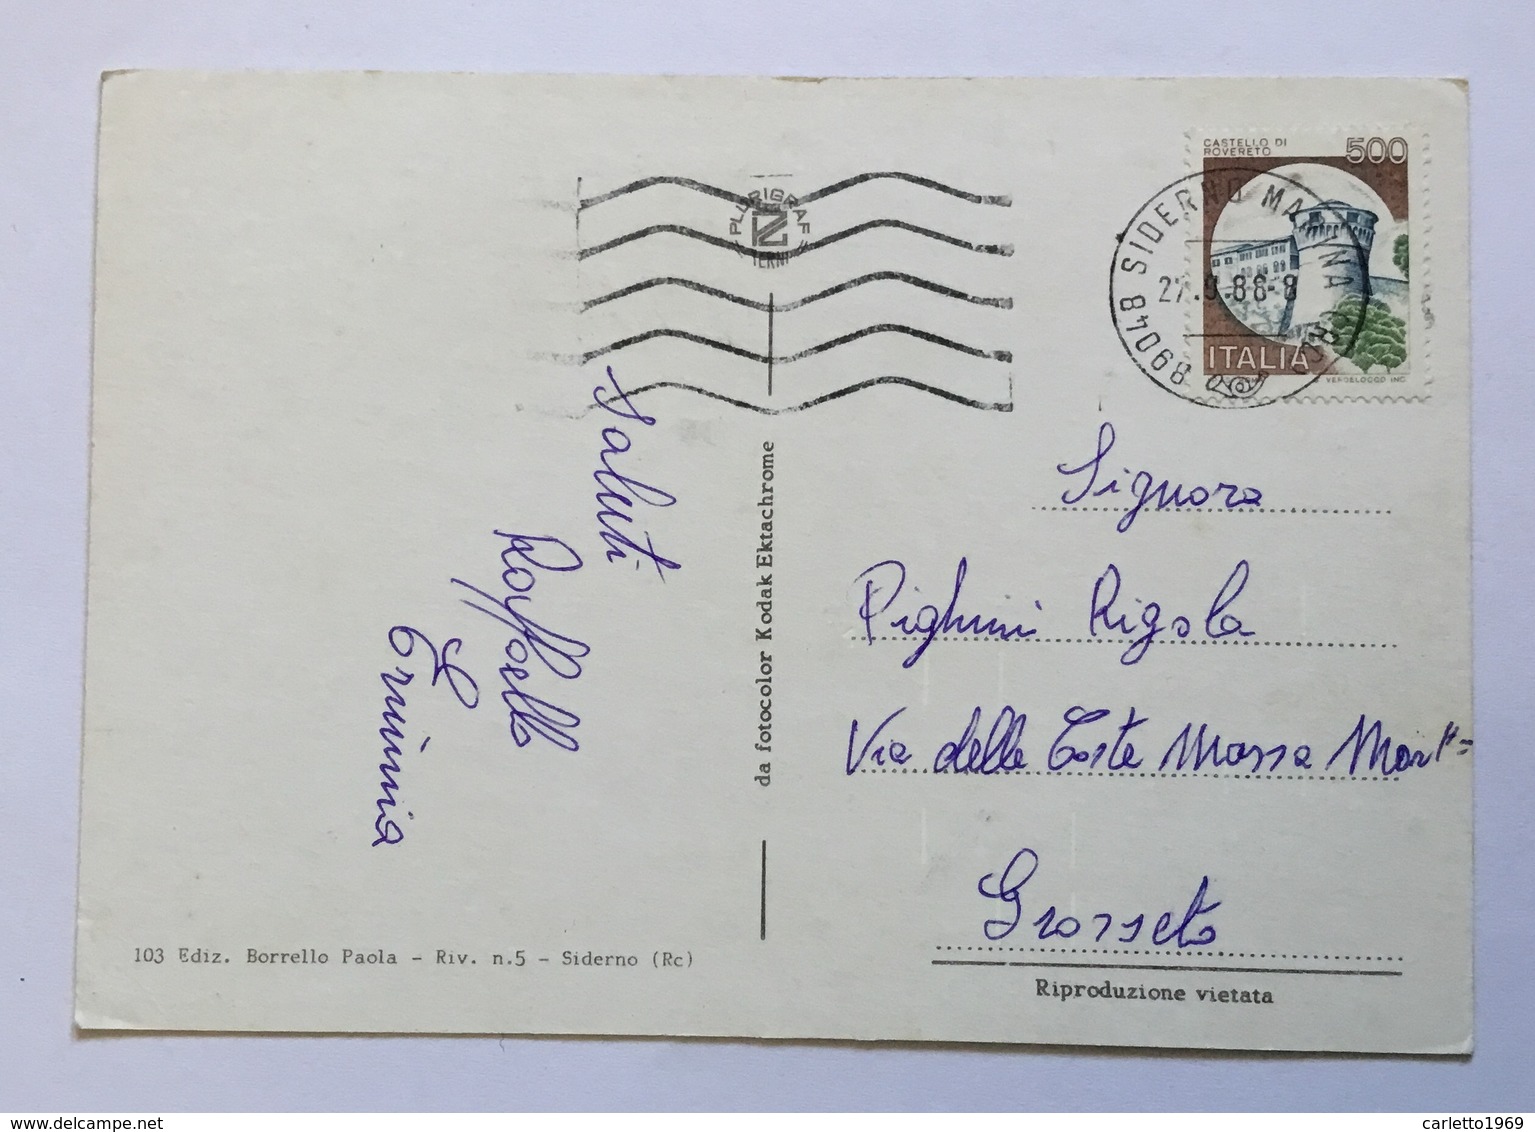 CASTELLO DI
ROVERETO
500
ITALIA
VERDELOCCO INC.
89048 SIDERNO MARINA
27.9.88-8
PLURIGRAF
TERNI
Saluti
Raffaello
Erminia
da fotocolor Kodak Ektachrome
Signora
Pighini Rigola
Via delle Coste Massa Mar
Grosseto
Riproduzione vietata
103 Ediz. Borrello Paola - Riv. n.5 - Siderno (Rc)
delcampe.net
carletto1969